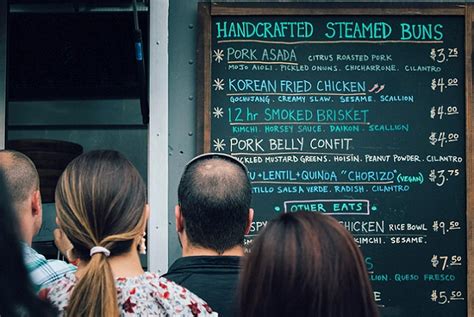 HANDCRAFTED STEAMED BUNS
* PORK ASADA CITRUS ROASTED PORK $3.75
MOJO AIOLI. PICKLED ONIONS. CHICHARRONE. CILANTRO
* KOREAN FRIED CHICKEN $4.00
GOCHUJANG. CREAMY SLAW. SESAME. SCALLION
* 12 hr SMOKED BRISKET $4.00
KIMCHI. HORSEY SAUCE. DAIKON. SCALLION
* PORK BELLY CONFIT $4.00
PICKLED MUSTARD GREENS. HOISIN. PEANUT POWDER. CILANTRO
+ LENTIL + QUINOA "CHORIZO" (VEGAN) $3.75
SALSA VERDE. RADISH. CILANTRO
OTHER EATS
CHICKEN RICE BOWL $9.50
KIMCHI. SESAME.
QUESO FRESCO $7.
$5.